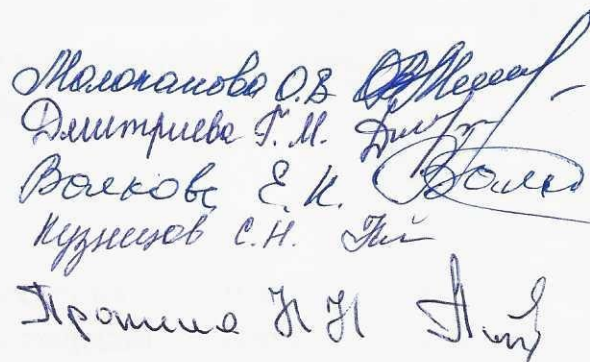 Молоканова О.В
Дмитриева Г.М.
Волкова Е.К.
Кузнецов С.Н.
Пронина Н Н